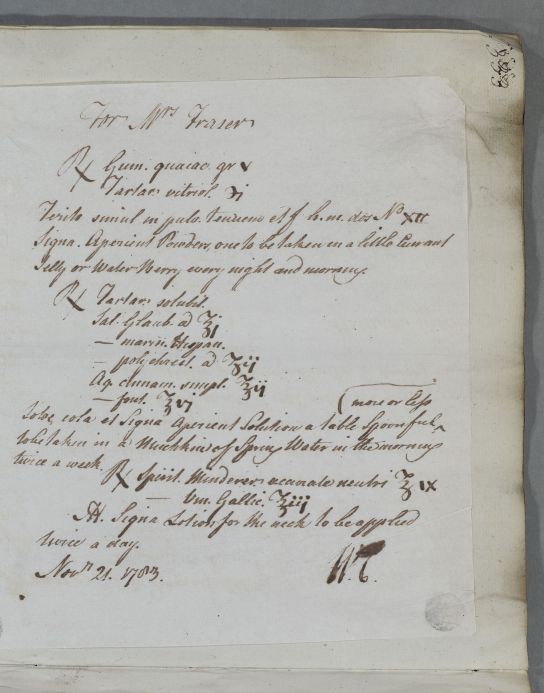 For Mrs Fraser
℞ Gum. guaiac. gr v
Tartar. vitriol. ʒi
Terito simul in pulv. tenuem et f. h. m. dos No XII
Signa. Aperient Powders, one to be taken in a little Currant
Jelly or Water Berry every night and morning.
℞ Tartar. solubil.
Sal. Glaub. a ℥i
— marin. Hispan.
— polychrest. a ʒij
Aq. cinnam. simpl. ℥ij
— font. ℥vj
more or less
Solve, cola et Signa Aperient Solution a table Spoonful
to be taken in a Mutchkin of Spring Water in the morning
twice a week.
℞ Spirit. Minderer. accurate neutri ℥ix
— Vin. Gallic. ℥iij
M. Signa Lotion for the neck to be applied
twice a day.
Novr 21. 1783.
W.C.